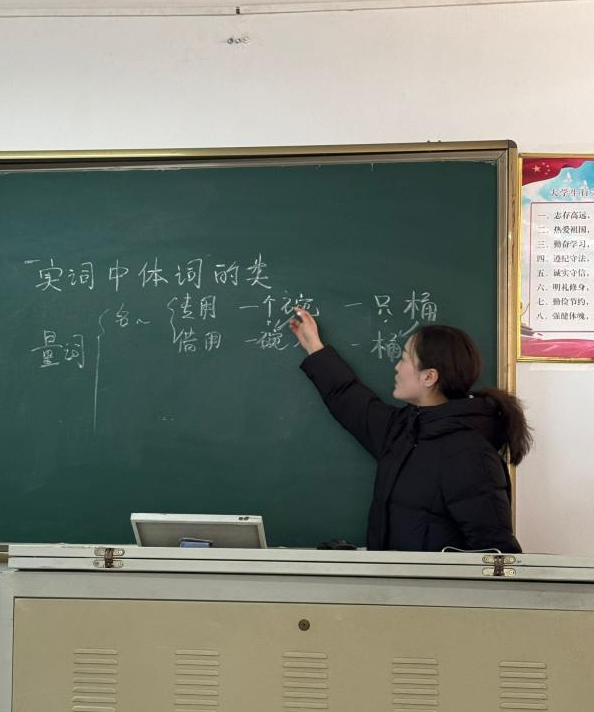 实词中体词的类
量词
名～
专用 一个碗 一只桶
借用 一碗 一桶
大学生行
一、志存高远，
二、热爱祖国，
三、勤奋学习，
四、遵纪守法，
五、诚实守信，
六、明礼修身，
七、勤俭节约，
八、强健体魄，